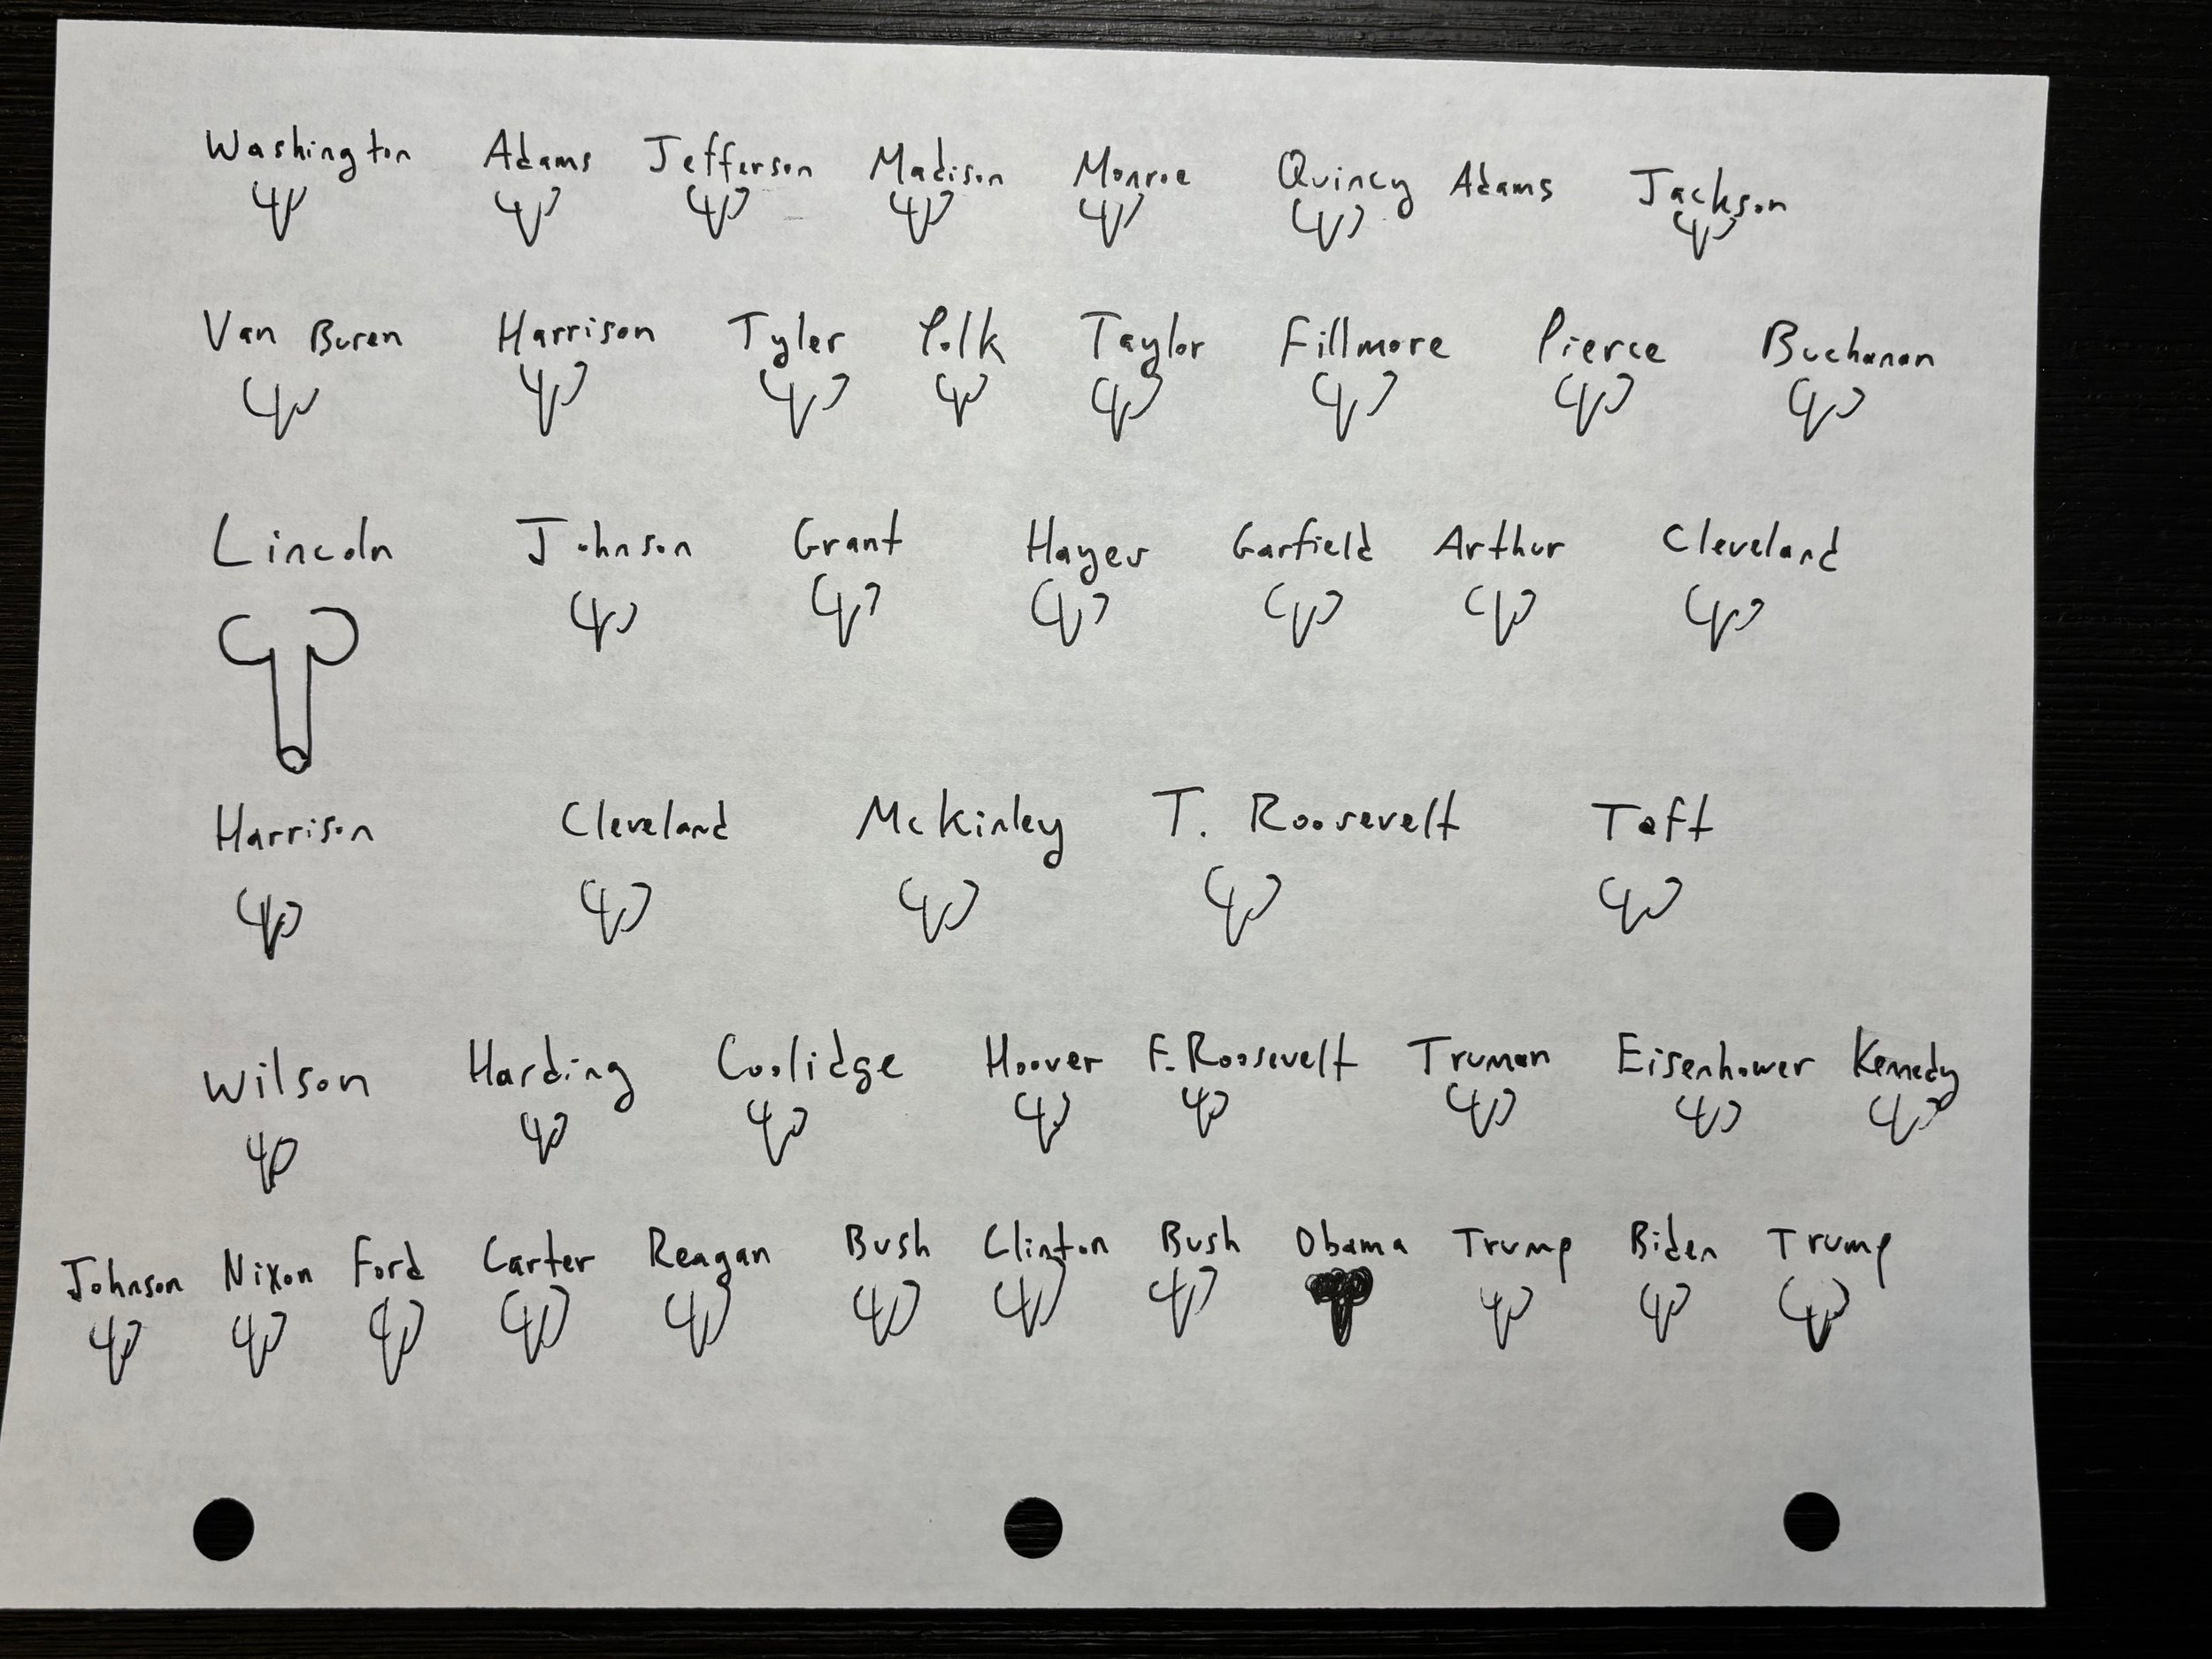 Washington Adams Jefferson Madison Monroe Quincy Adams Jackson
Van Buren Harrison Tyler Polk Taylor Fillmore Pierce Buchanan
Lincoln Johnson Grant Hayes Garfield Arthur Cleveland
Harrison Cleveland McKinley T. Roosevelt Taft
Wilson Harding Coolidge Hoover F. Roosevelt Truman Eisenhower Kennedy
Johnson Nixon Ford Carter Reagan Bush Clinton Bush Obama Trump Biden Trump